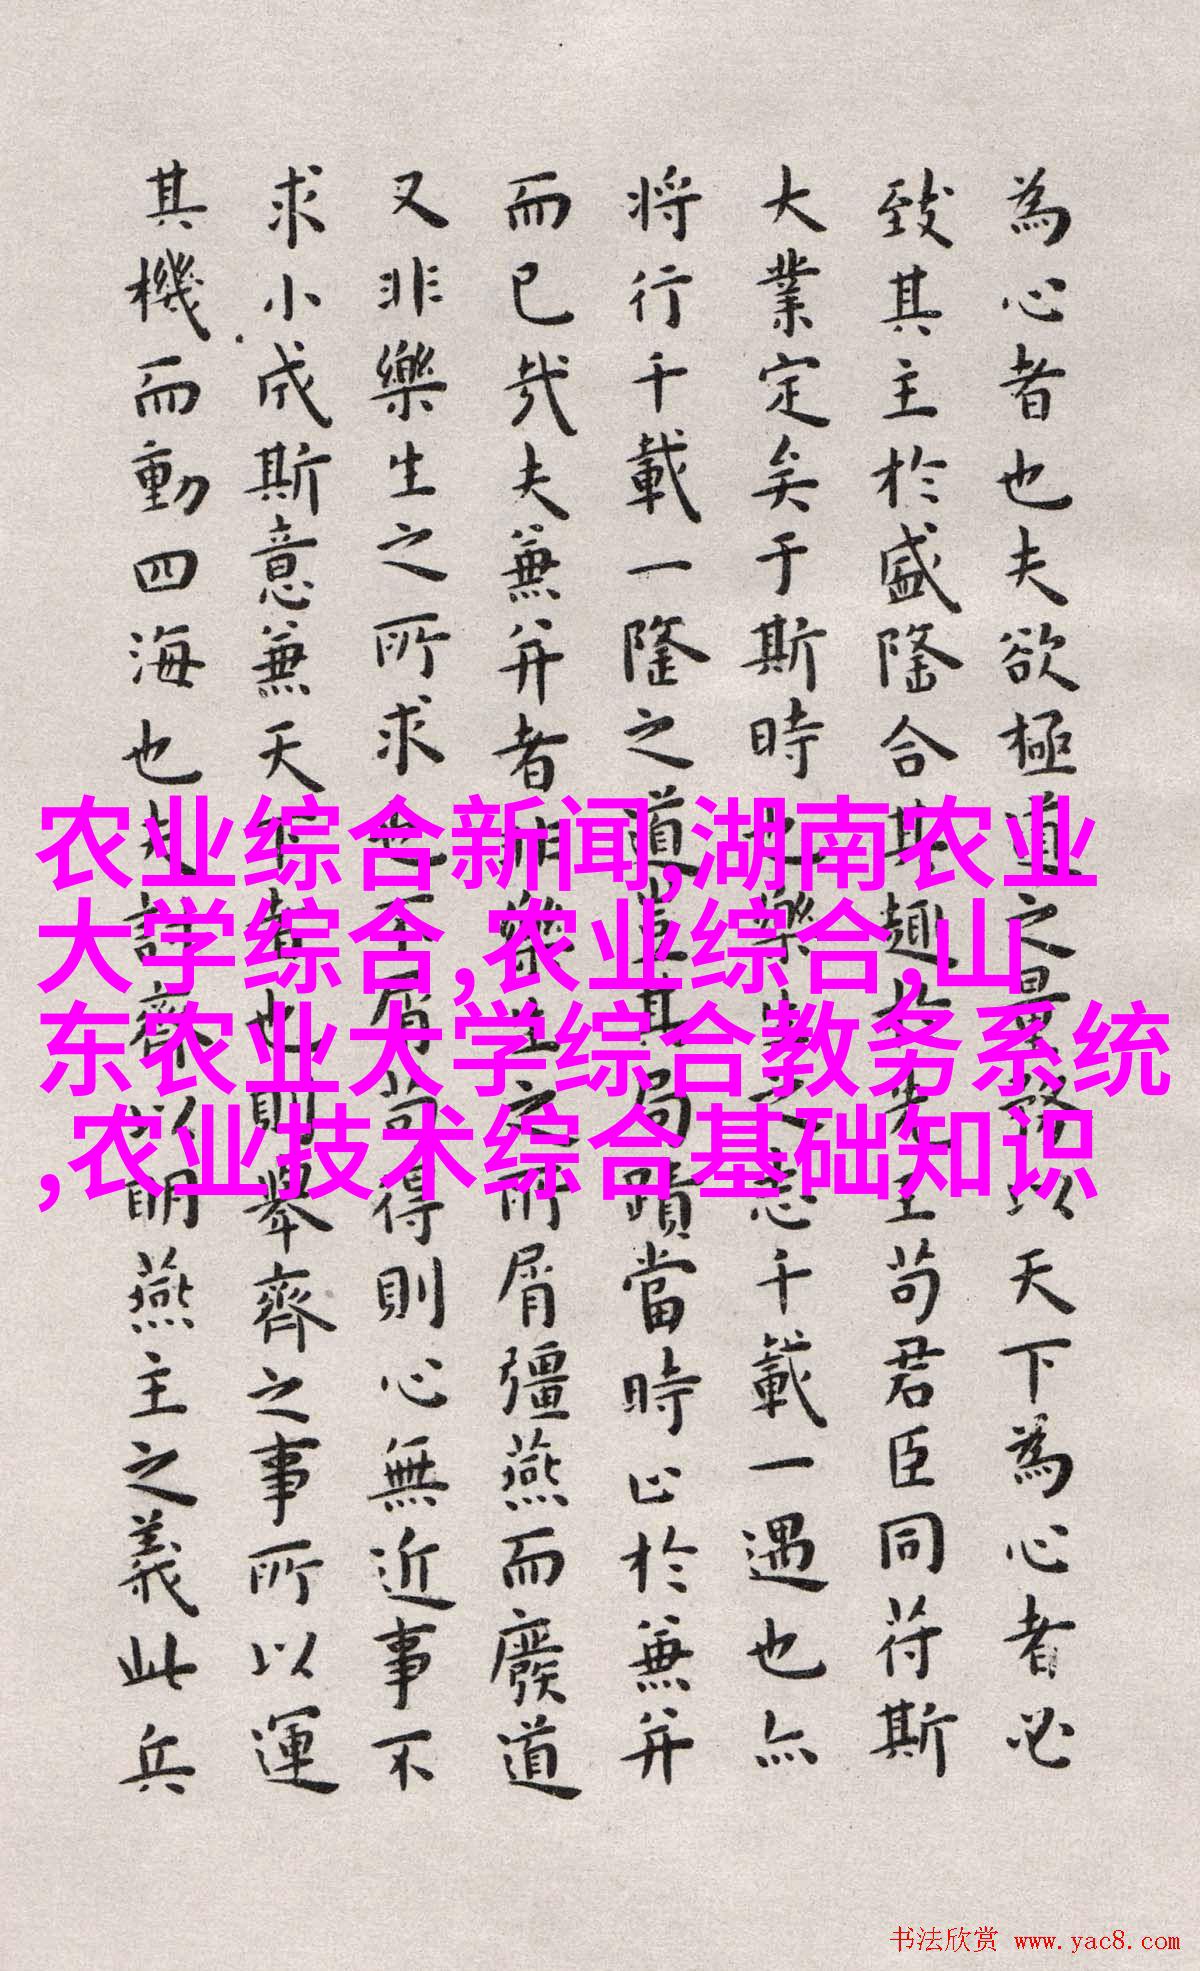 為心者也夫欲極道之量務以天下為心者必
致其主於盛隆合其趣於先王苟君臣同符斯
大業定矣于斯時也樂生之志千載一遇也亦
将行千載一隆之道豈其局蹟當時止於兼并
而已哉夫兼并者非樂生之所屑彊燕而廢道
又非樂生之所求也不屑苟得則心無近事不
求小成斯意兼天下者也則舉齊之事所以運
其機而動四海也夫討齊以明燕主之義此兵
农业综合新闻,湖南农业
大学综合,农业综合,山
东农业大学综合教务系统
,农业技术综合基础知识
书法欣赏 www.yac8.com